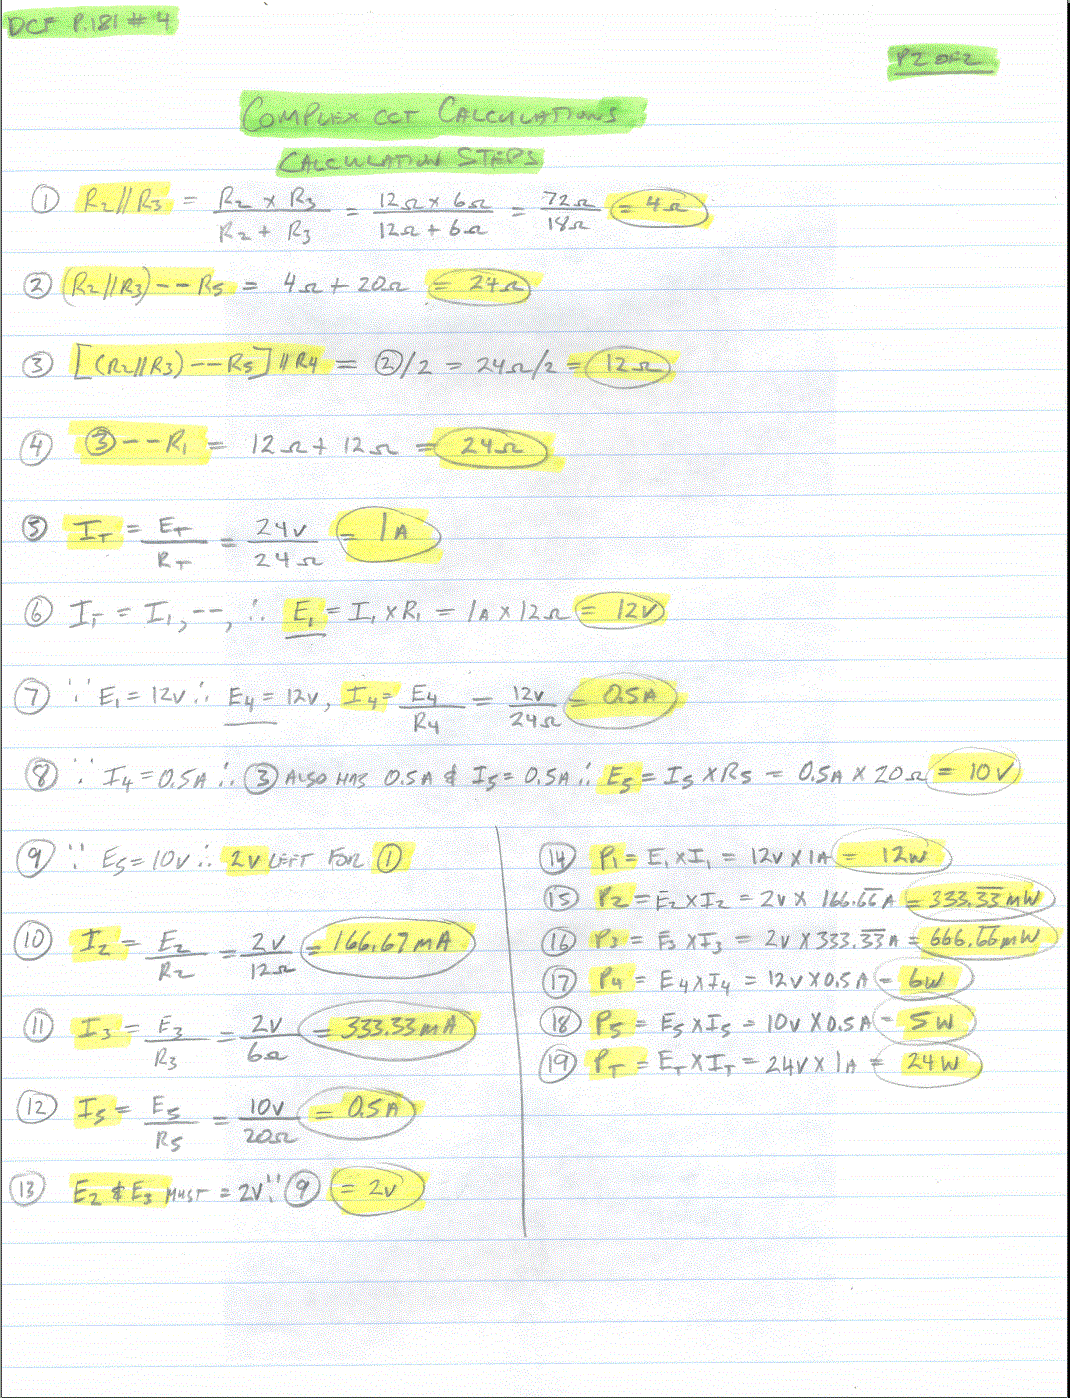 DCF P.181 # 4
P2 OF 2
COMPLEX CCT CALCULATIONS
CALCULATION STEPS
① R2//R3 = R2 x R3 / R2 + R3 = 12Ω x 6Ω / 12Ω + 6Ω = 72Ω / 18Ω = 4Ω
② (R2//R3)--R5 = 4Ω + 20Ω = 24Ω
③ [(R2//R3)--R5]//R4 = ②/2 = 24Ω/2 = 12Ω
④ ③--R1 = 12Ω + 12Ω = 24Ω
⑤ IT = ET / RT = 24V / 24Ω = 1A
⑥ IT = I1, --, ∴ E1 = I1 x R1 = 1A x 12Ω = 12V
⑦ ∵ E1 = 12V ∴ E4 = 12V, I4 = E4 / R4 = 12V / 24Ω = 0.5A
⑧ ∵ I4 = 0.5A ∴ ③ ALSO HAS 0.5A & I5 = 0.5A ∴ E5 = I5 x R5 = 0.5A x 20Ω = 10V
⑨ ∵ E5 = 10V ∴ 2V LEFT FOR ①
⑩ I2 = E2 / R2 = 2V / 12Ω = 166.67mA
⑪ I3 = E3 / R3 = 2V / 6Ω = 333.33mA
⑫ I5 = E5 / R5 = 10V / 20Ω = 0.5A
⑬ E2 & E3 MUST = 2V ∵ ⑨ = 2V
⑭ P1 = E1 x I1 = 12V x 1A = 12W
⑮ P2 = E2 x I2 = 2V x 166.6̅6̅A = 333.3̅3̅mW
⑯ P3 = E3 x I3 = 2V x 333.3̅3̅A = 666.6̅6̅mW
⑰ P4 = E4 x I4 = 12V x 0.5A = 6W
⑱ P5 = E5 x I5 = 10V x 0.5A = 5W
⑲ PT = ET x IT = 24V x 1A = 24W